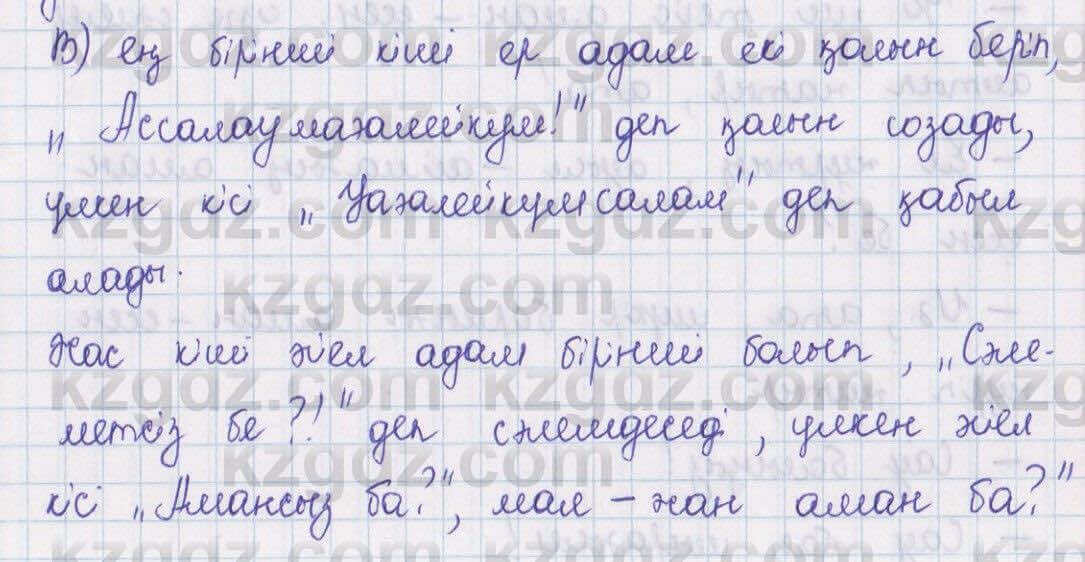 В) ең бірінші кіші ер адам екі қолын беріп,
„Ассалаумағалейкум!" деп қолын созады,
үлкен кісі „Уағалейкумсалам" деп қабыл
алады.
Жас кіші әйел адам бірінші болып, „Сәле-
метсіз бе?!" деп сәлемдеседі, үлкен әйел
кісі „Амансыз ба?", мал – жан аман ба?"
kzgdz.com